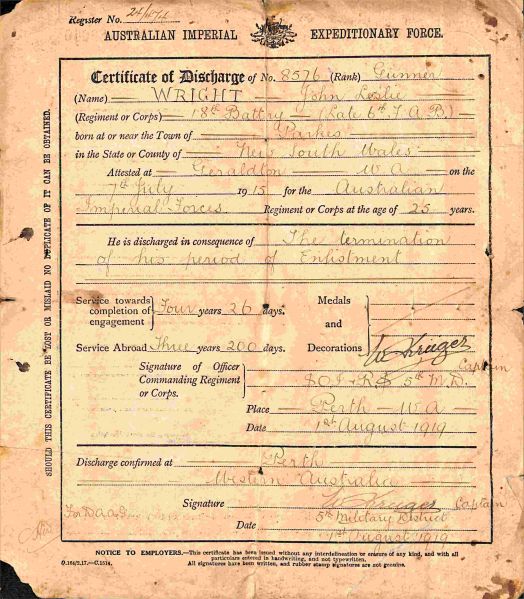 Register No.
AUSTRALIAN IMPERIAL EXPEDITIONARY FORCE.
Certificate of Discharge of No. 8576 (Rank) Gunner
(Name) WRIGHT John Leslie
(Regiment or Corps) 18th Battry (Late 6th F A B)
born at or near the Town of Parkes
in the State or County of New South Wales
Attested at Geraldton W A on the
7th July 1915 for the Australian
Imperial Forces Regiment or Corps at the age of 25 years.
He is discharged in consequence of The termination
of his period of Enlistment
Service towards completion of engagement Four years 26 days.
Medals and Decorations
Service Abroad Three years 200 days.
W Kruger
Captain
Signature of Officer Commanding Regiment or Corps.
5th M.D.
Place Perth W A
Date 1st August 1919
Discharge confirmed at Perth
Western Australia
Signature W Kruger Captain
5th Military District
Date 1st August 1919
NOTICE TO EMPLOYERS.—This certificate has been issued without any interdelineation or erasures of any kind, and with all
particulars entered in handwriting, and not typewritten.
All signatures have been written, and rubber stamp signatures are not genuine.
SHOULD THIS CERTIFICATE BE LOST OR MISLAID NO DUPLICATE OF IT CAN BE OBTAINED.